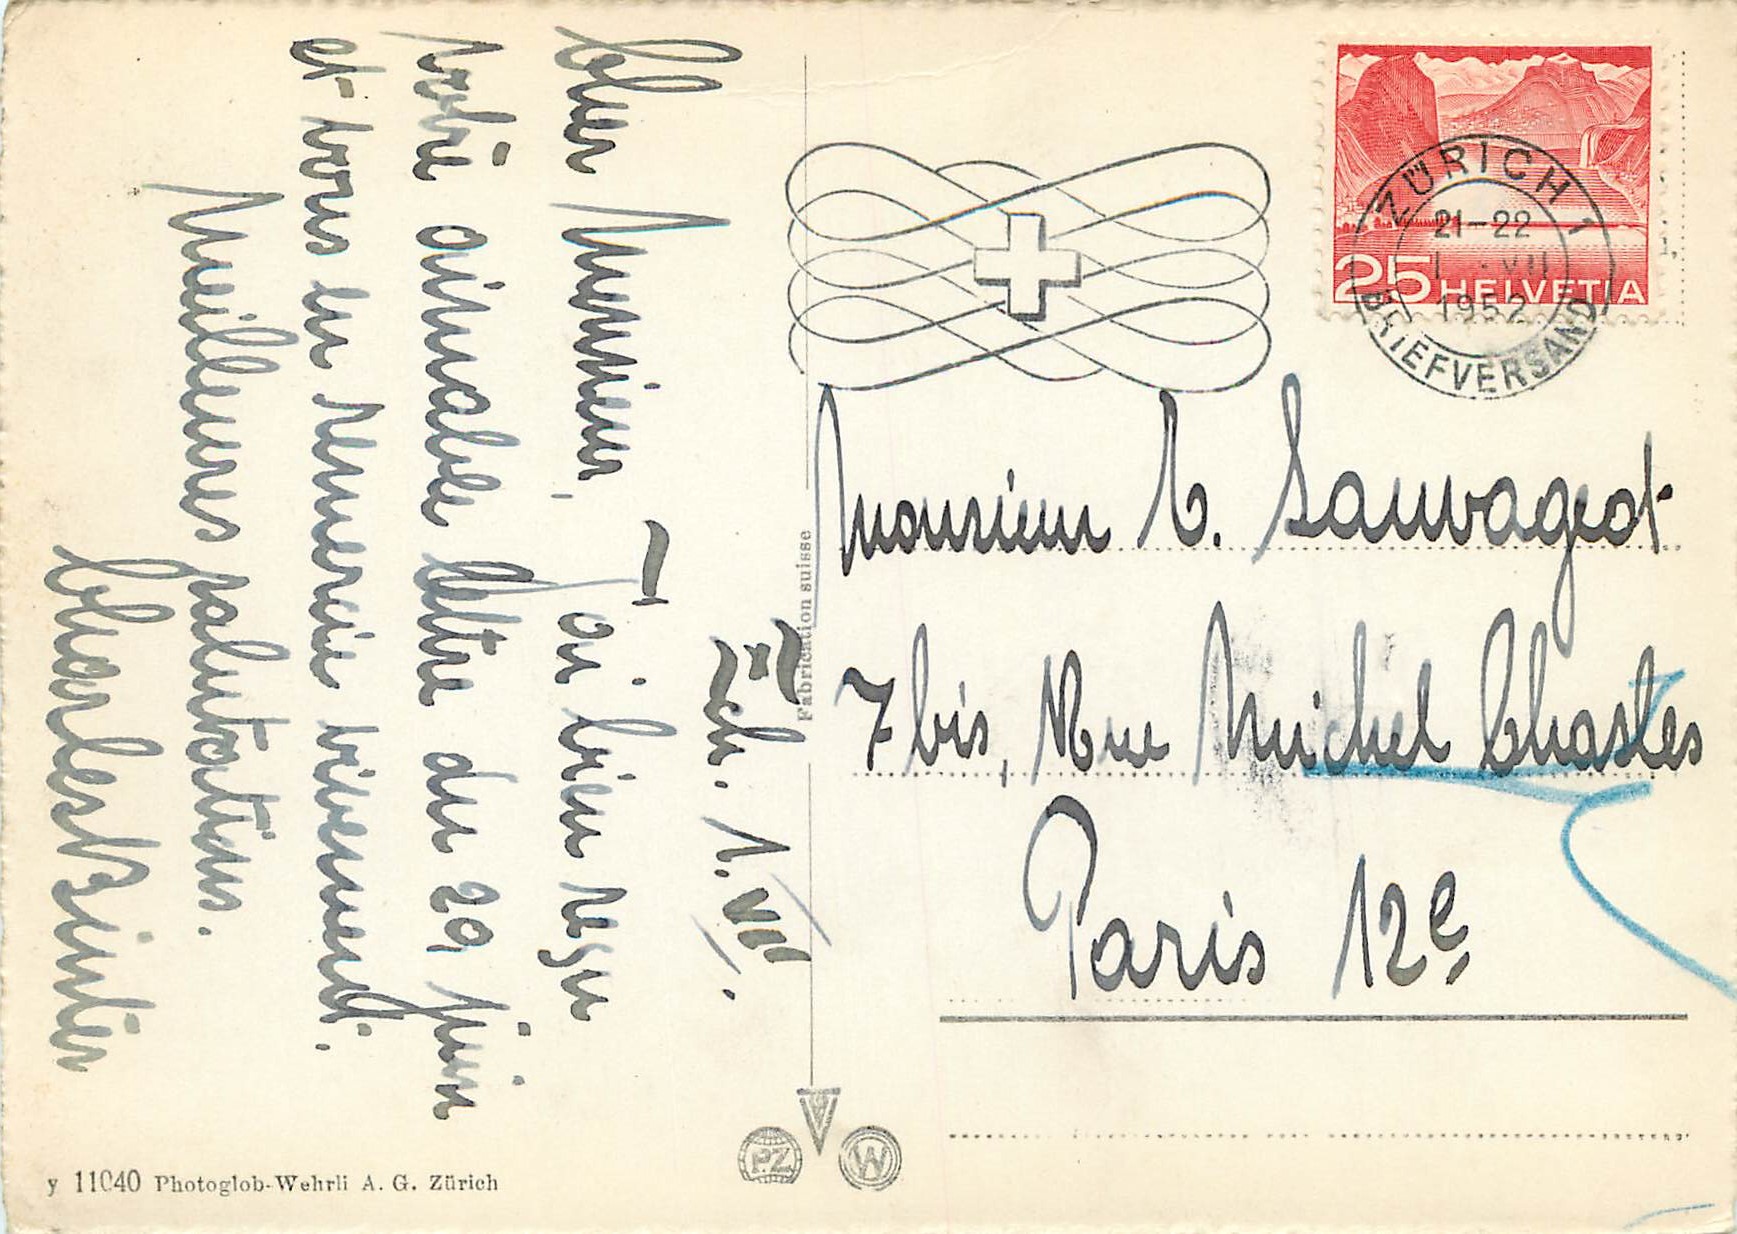 Zch. 1. VII.
Cher Monsieur,
J'ai bien reçu
votre aimable lettre du 29 juin
et vous en remercie vivement.
Meilleures salutations.
Charles
Fabrication suisse
ZÜRICH 1
21-22
1 VII
1952
BRIEFVERSAND
25 HELVETIA
Monsieur E. Sauvageot
7 bis, Rue Michel Chasles
Paris 12e
PZ
W
y 11040 Photoglob-Wehrli A. G. Zürich